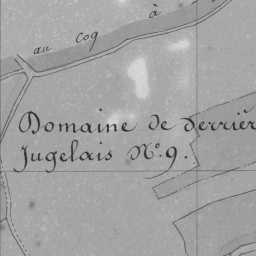 au Coq à
Domaine de derrièr
Jugelais N.º 9.